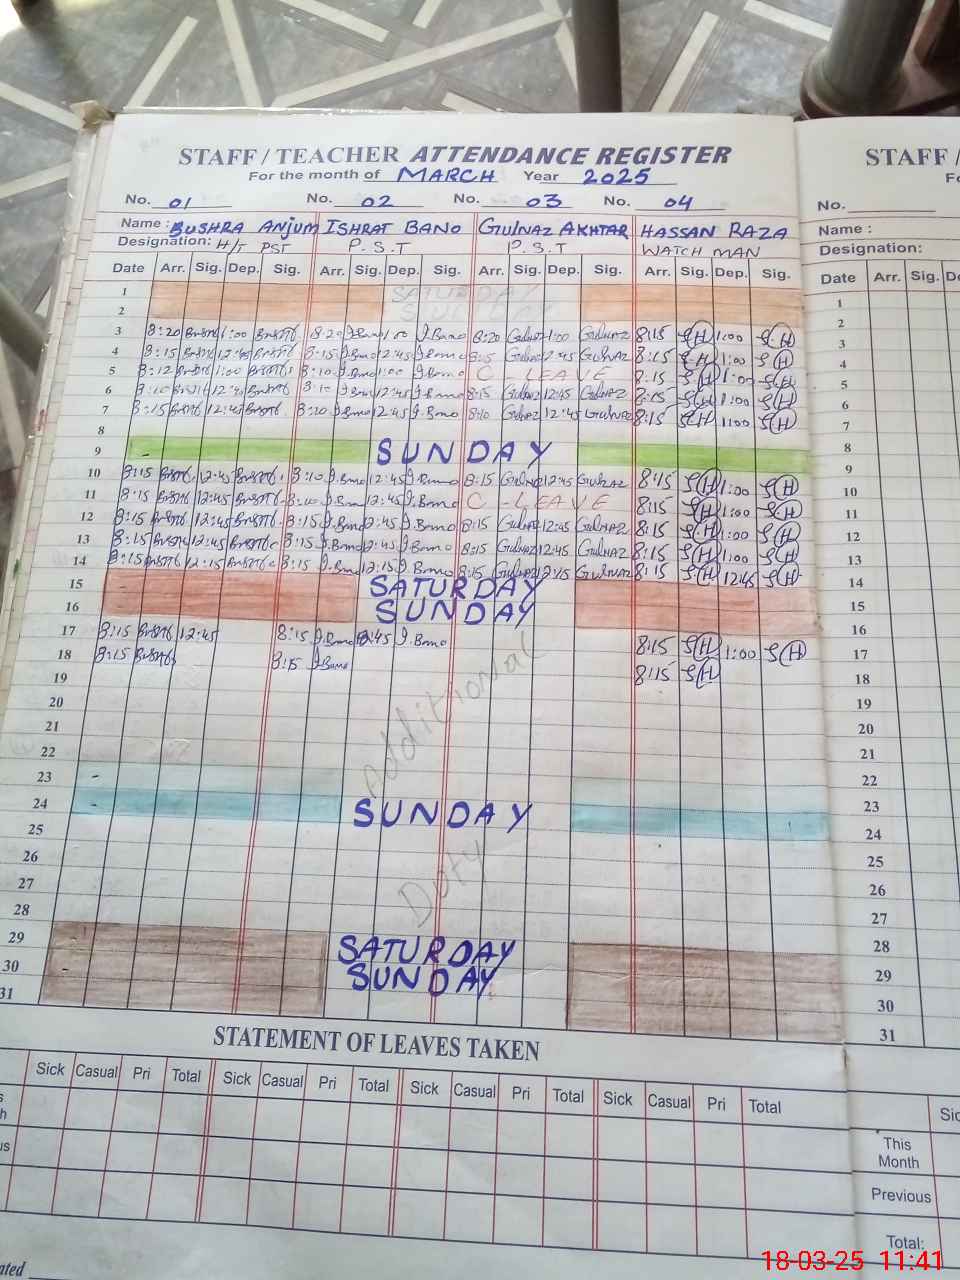 STAFF / TEACHER ATTENDANCE REGISTER
For the month of MARCH Year 2025
No. 01 No. 02 No. 03 No. 04
Name : BUSHRA ANJUM ISHRAT BANO GULNAZ AKHTAR HASSAN RAZA
Designation: H/T PST P.S.T P.S.T WATCH MAN
Date Arr. Sig. Dep. Sig. Arr. Sig. Dep. Sig. Arr. Sig. Dep. Sig. Arr. Sig. Dep. Sig.
1 SATURDAY
2 SUNDAY
3 8:20 1:00 8:20 J.Bano 1:00 J.Bano 8:20 Gulnaz 1:00 Gulnaz 8:15 1:00
4 8:15 12:45 8:15 J.Bano 12:45 J.Bano 8:15 Gulnaz 12:45 Gulnaz 8:15 1:00
5 8:12 1:00 8:10 J.Bano 1:00 J.Bano C - LEAVE 8:15 1:00
6 8:10 12:45 8:10 J.Bano 12:45 J.Bano 8:15 Gulnaz 12:45 Gulnaz 8:15 1:00
7 8:15 12:45 8:20 J.Bano 12:45 J.Bano 8:10 Gulnaz 12:45 Gulnaz 8:15 1:00
8
9 SUNDAY
10 8:15 12:45 8:10 J.Bano 12:45 J.Bano 8:15 Gulnaz 12:45 Gulnaz 8:15 1:00
11 8:15 12:45 8:10 J.Bano 12:45 J.Bano C - LEAVE 8:15 1:00
12 8:15 12:45 8:15 J.Bano 12:45 J.Bano 8:15 Gulnaz 12:45 Gulnaz 8:15 1:00
13 8:15 12:45 8:15 J.Bano 12:45 J.Bano 8:15 Gulnaz 12:45 Gulnaz 8:15 1:00
14 8:15 12:15 8:15 J.Bano 12:15 J.Bano 8:15 Gulnaz 12:15 Gulnaz 8:15 12:45
15 SATURDAY
16 SUNDAY
17 8:15 12:45 8:15 J.Bano 12:45 J.Bano 8:15 1:00
18 8:15 8:15 J.Bano 8:15
19
20
21
22
23
24 SUNDAY
25
26
27
28
29 SATURDAY
30 SUNDAY
31
Additional
Duty
STATEMENT OF LEAVES TAKEN
Sick Casual Pri Total Sick Casual Pri Total Sick Casual Pri Total Sick Casual Pri Total
STAFF /
No.
Name :
Designation:
Date Arr. Sig.
1
2
3
4
5
6
7
8
9
10
11
12
13
14
15
16
17
18
19
20
21
22
23
24
25
26
27
28
29
30
31
This
Month
Previous
Total:
18-03-25 11:41